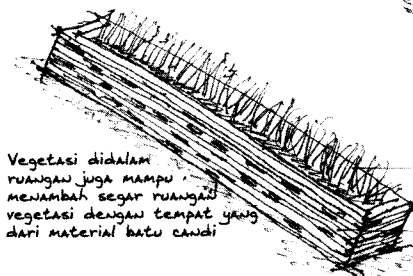 Vegetasi didalam
ruangan juga mampu
menambah segar ruangan
vegetasi dengan tempat yang
dari material batu candi